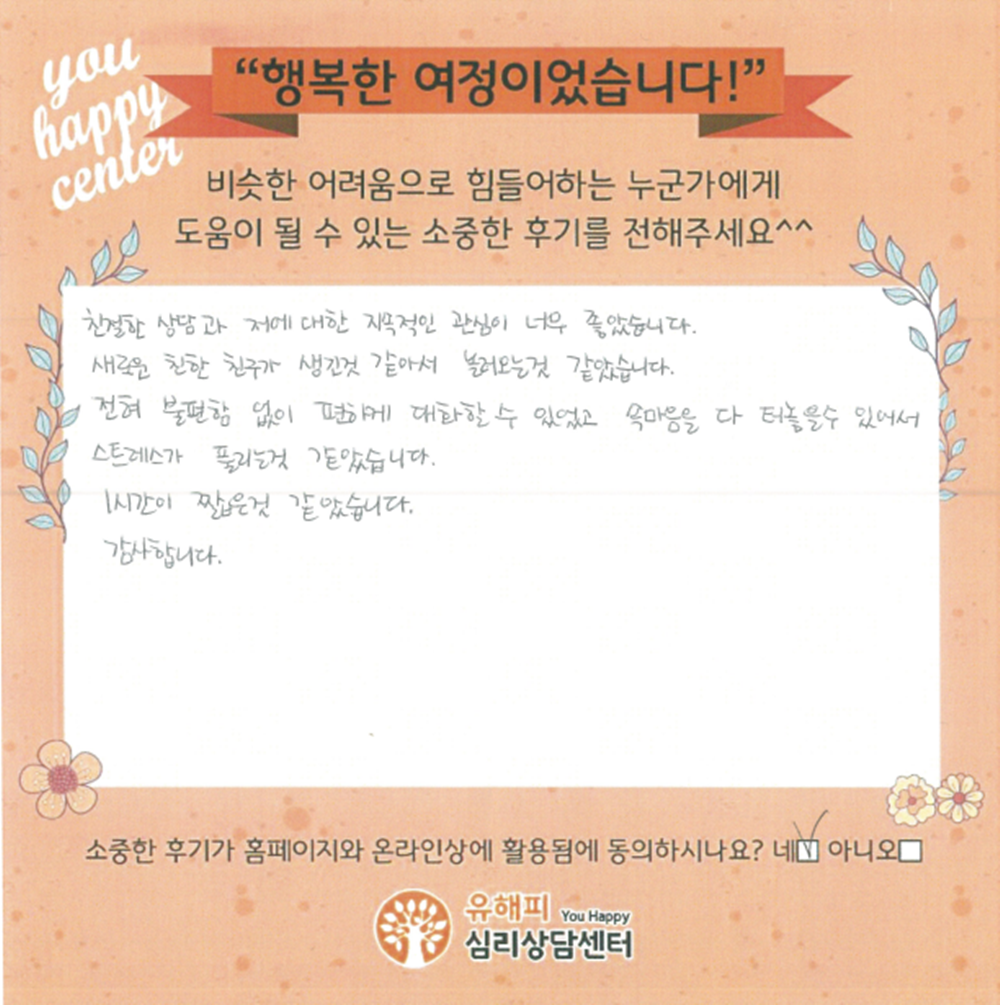 you
happy
center
“행복한 여정이었습니다!”
비슷한 어려움으로 힘들어하는 누군가에게
도움이 될 수 있는 소중한 후기를 전해주세요^^
친절한 상담과 저에 대한 지속적인 관심이 너무 좋았습니다.
새로운 친한 친구가 생긴것 같아서 놀러오는것 같았습니다.
전혀 불편함 없이 편하게 대화할 수 있었고 속마음을 다 터놓을수 있어서
스트레스가 풀리는것 같았습니다.
1시간이 짧은것 같았습니다.
감사합니다.
소중한 후기가 홈페이지와 온라인상에 활용됨에 동의하시나요? 네☑ 아니오☐
유해피 You Happy
심리상담센터